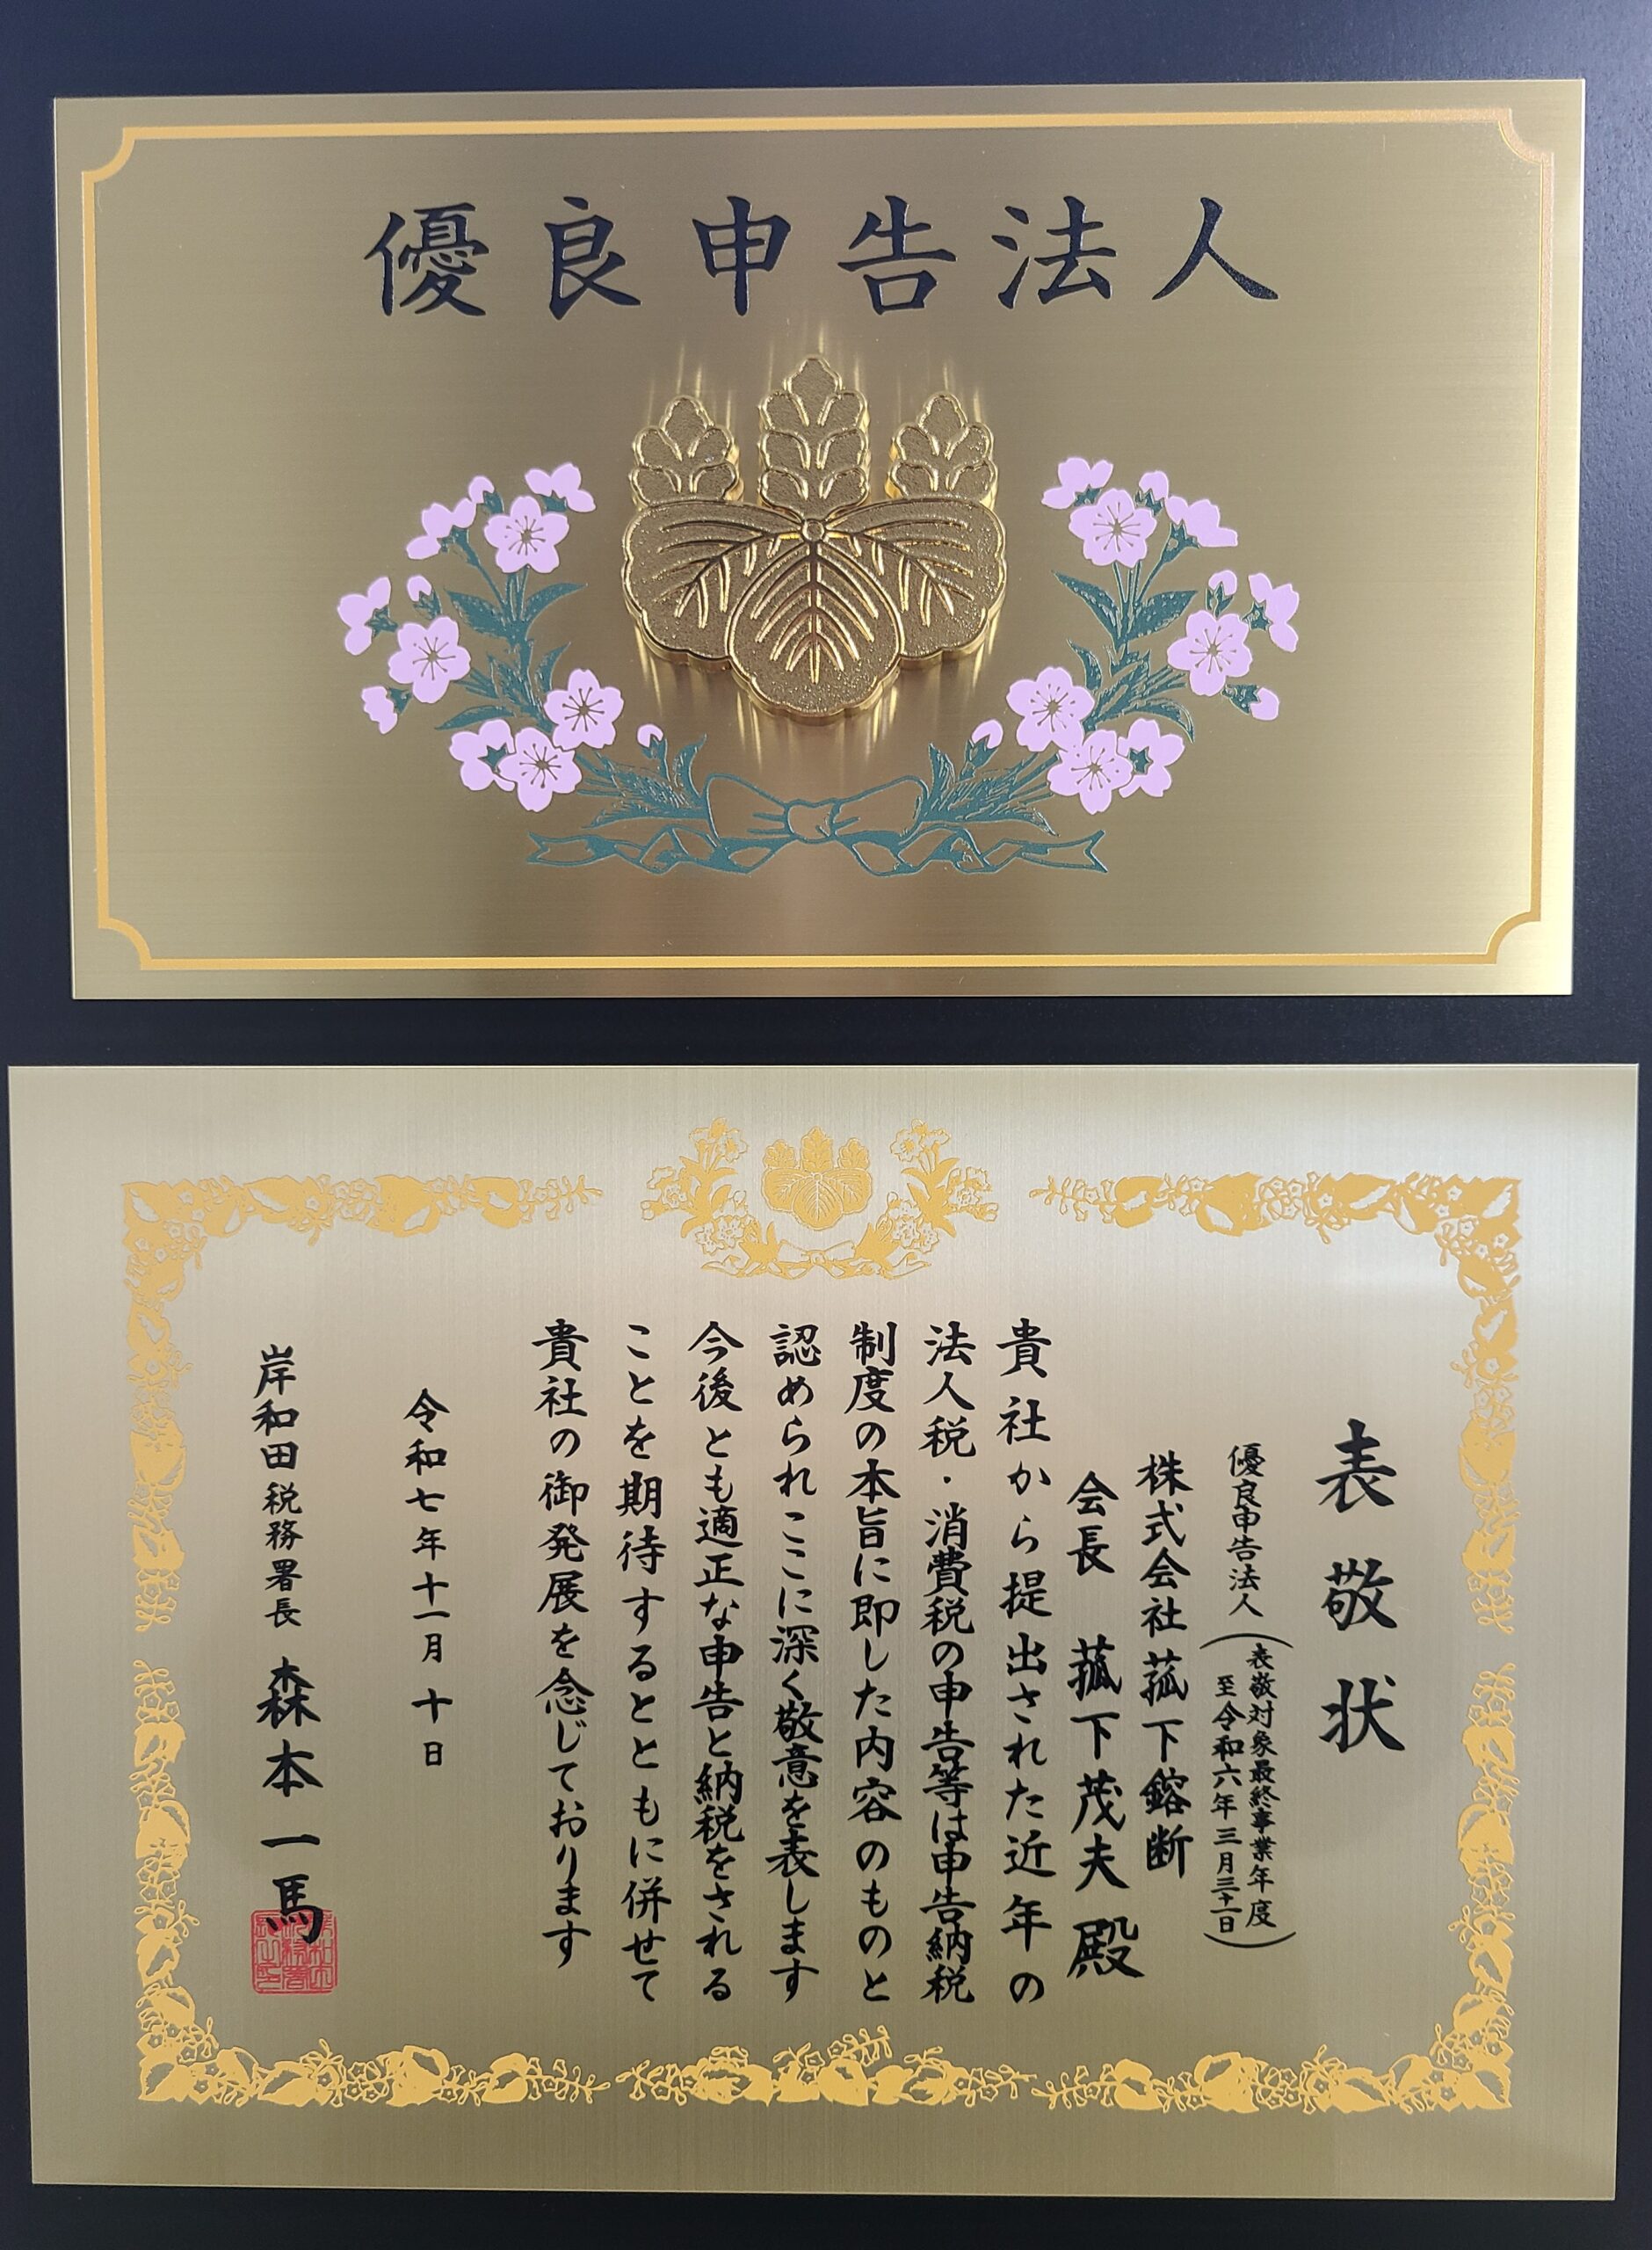 優良申告法人
表敬状
優良申告法人
(表敬対象最終事業年度
至令和六年三月三十一日)
株式会社菰下鎔断
会長 菰下茂夫 殿
貴社から提出された近年の
法人税・消費税の申告等は申告納税
制度の本旨に即した内容のものと
認められここに深く敬意を表します
今後とも適正な申告と納税をされる
ことを期待するとともに併せて
貴社の御発展を念じております
令和七年十一月十日
岸和田税務署長 森本一馬